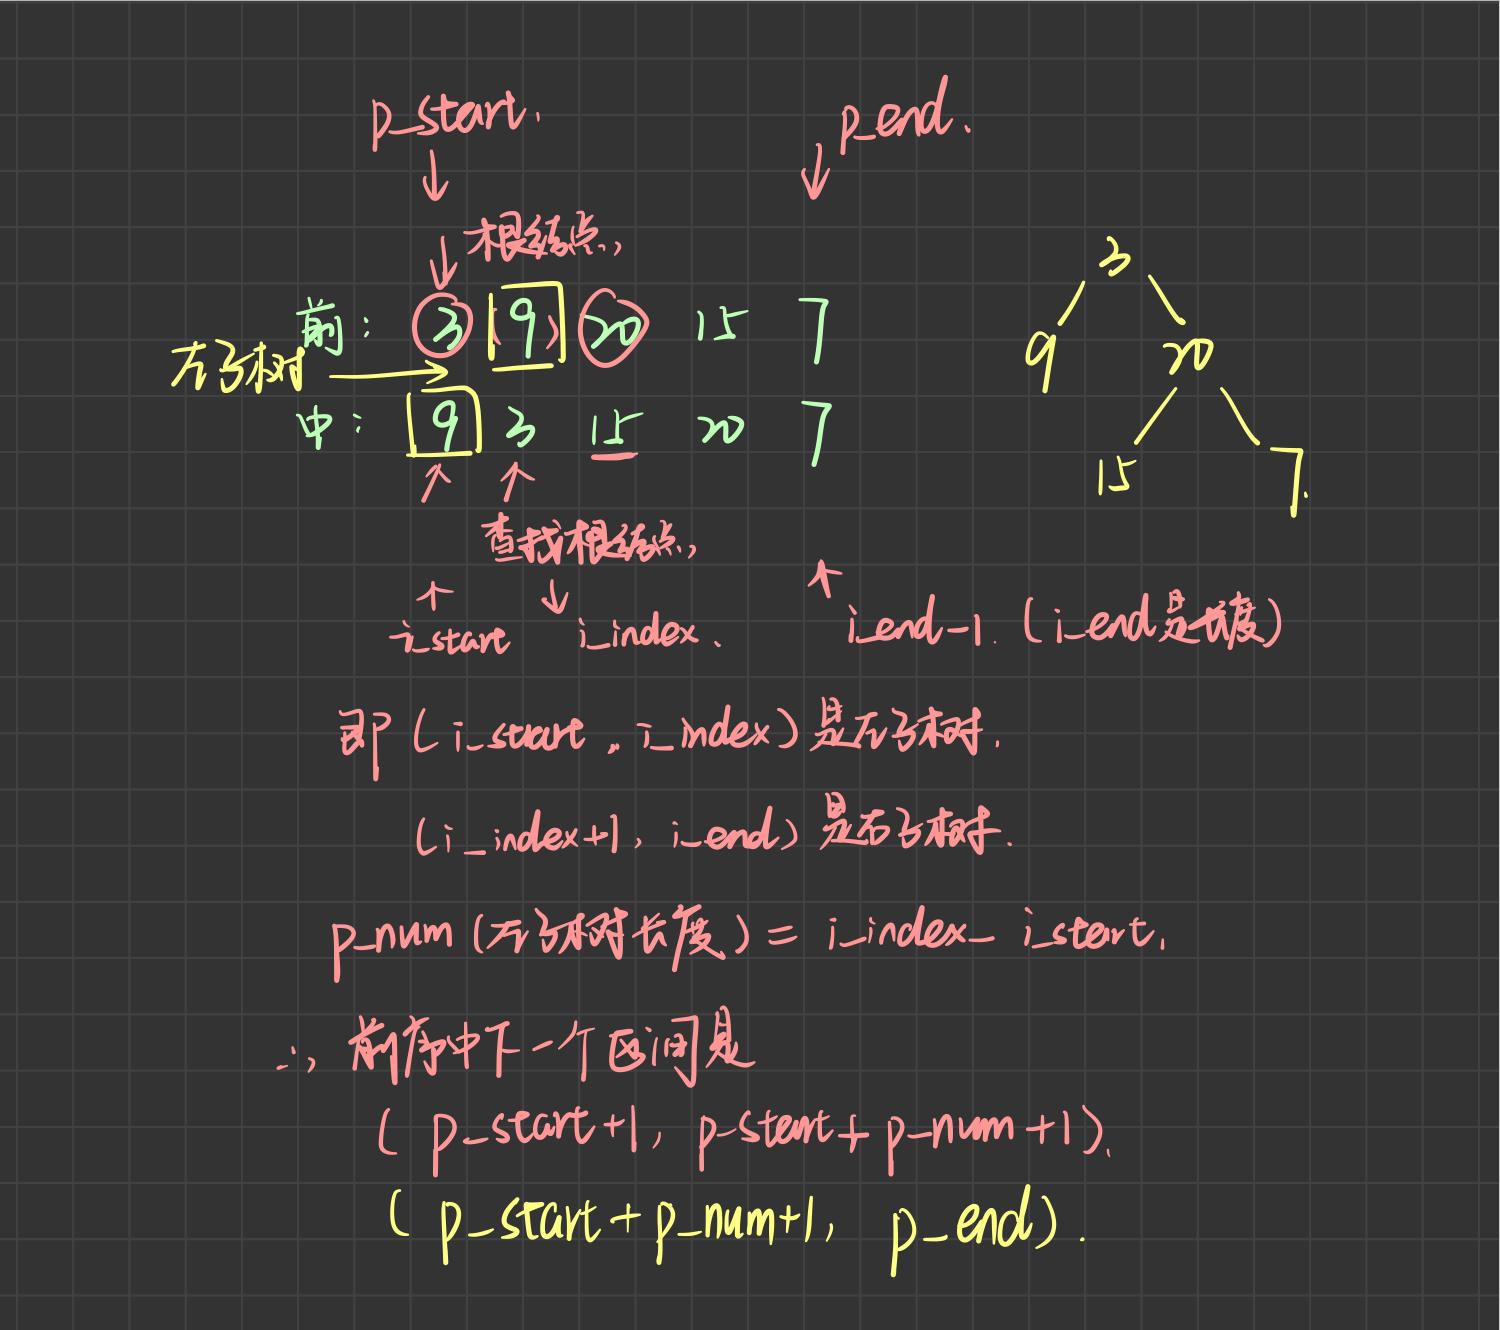 p_start. p_end.
↓ ↓
↓ 根结点,
前: 3 (9) 20 15 7
左子树 →
中: 9 3 15 20 7
↑ ↑
查找根结点,
↑ ↓ ↑
i_start i_index. i_end-1. (i_end是长度)
即 (i_start, i_index) 是左子树.
(i_index+1, i_end) 是右子树.
p_num (左子树长度) = i_index - i_start.
∴, 前序中下一个区间是
( p_start+1, p_start + p_num+1).
( p_start + p_num+1, p_end).
3
9 20
15 7.